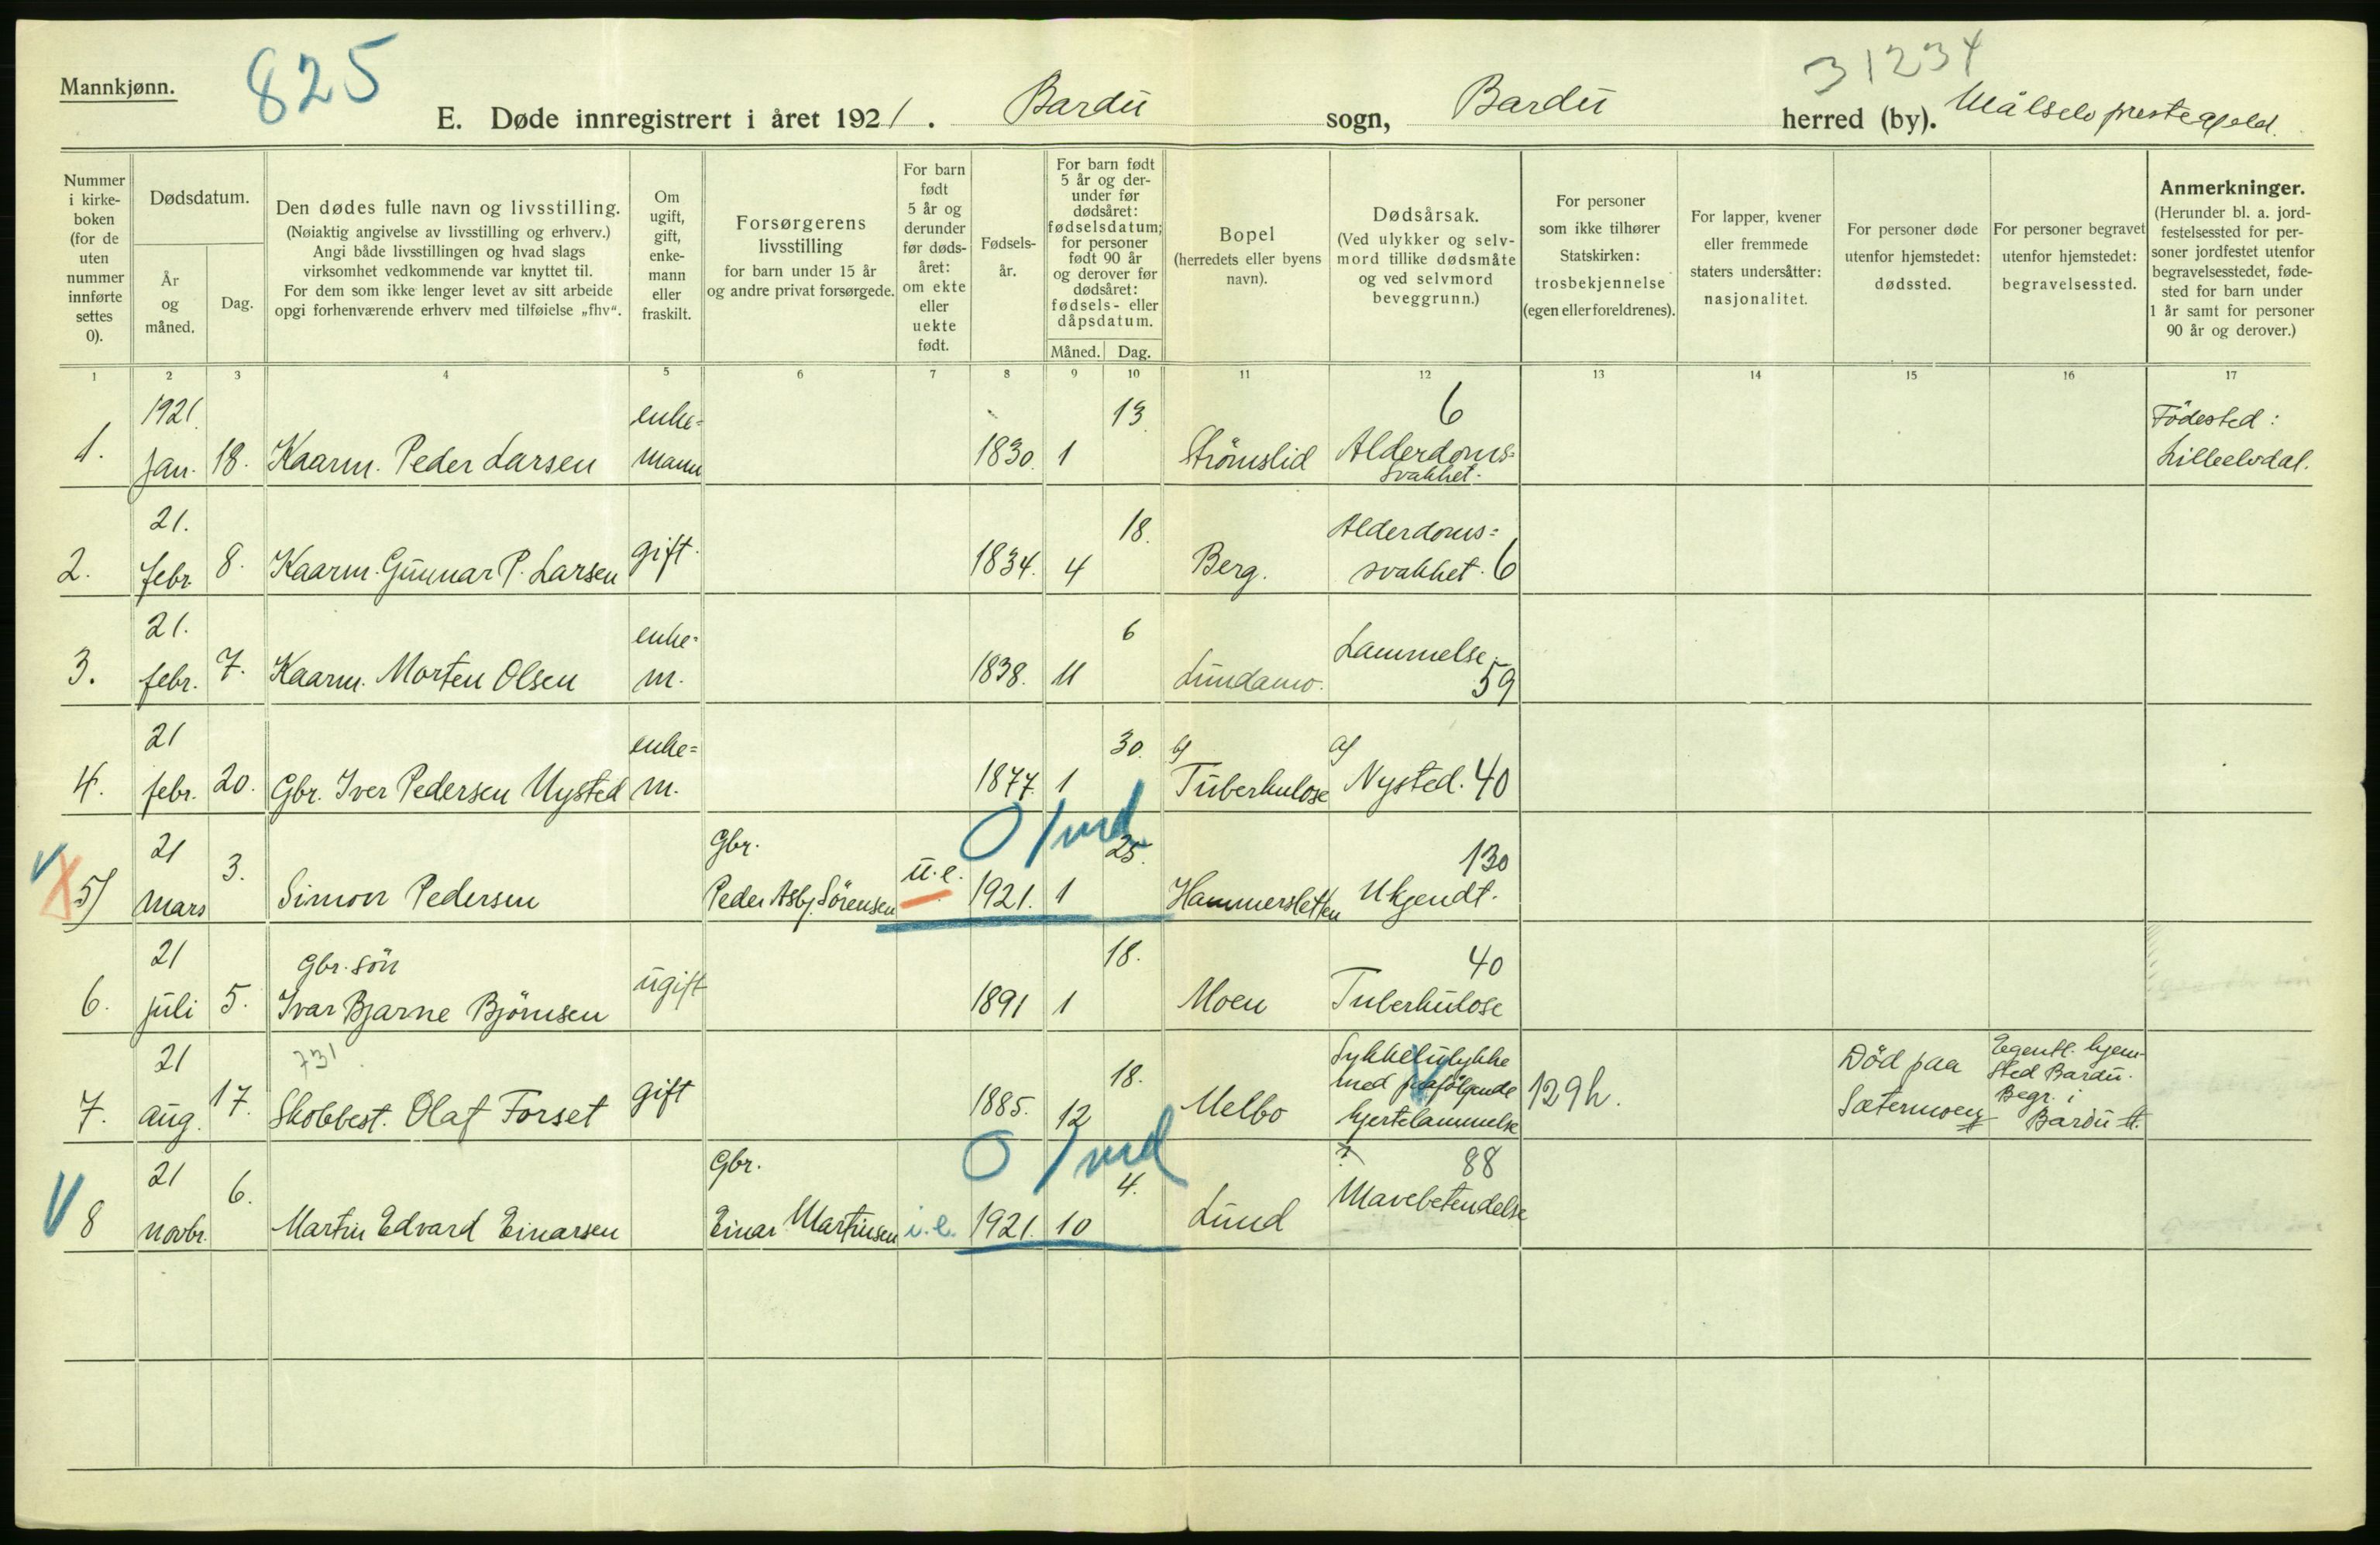 Mannkjønn.
825
31234
E. Døde innregistrert i året 1921. Bardü sogn, Bardü herred (by). Målselv prestegjeld.
Nummer i kirkeboken (for de uten nummer innførte settes 0).
Dødsdatum.
År og måned.
Dag.
Den dødes fulle navn og livsstilling.
(Nøiaktig angivelse av livsstilling og erhverv.)
Angi både livsstillingen og hvad slags
virksomhet vedkommende var knyttet til.
For dem som ikke lenger levet av sitt arbeide
opgi forhenværende erhverv med tilføielse „fhv“.
Om ugift, gift, enkemann eller fraskilt.
Forsørgerens
livsstilling
for barn under 15 år
og andre privat forsørgede.
For barn født 5 år og derunder før dødsåret: om ekte eller uekte født.
Fødselsår.
For barn født 5 år og derunder før dødsåret: fødselsdatum; for personer født 90 år og derover før dødsåret: fødsels- eller dåpsdatum.
Måned. Dag.
Bopel
(herredets eller byens
navn).
Dødsårsak.
(Ved ulykker og selv-
mord tillike dødsmåte
og ved selvmord
beveggrunn.)
For personer
som ikke tilhører
Statskirken:
trosbekjennelse
(egen eller foreldrenes).
For lapper, kvener
eller fremmede
staters undersåtter:
nasjonalitet.
For personer døde
utenfor hjemstedet:
dødssted.
For personer begravet
utenfor hjemstedet:
begravelsessted.
Anmerkninger.
(Herunder bl. a. jord-
festelsessted for per-
soner jordfestet utenfor
begravelsesstedet, føde-
sted for barn under
1 år samt for personer
90 år og derover.)
1 2 3 4 5 6 7 8 9 10 11 12 13 14 15 16 17
1. 1921. Jan. 18. Kaarm. Peder Larsen enke=mann 1830. 1 13. Strömslid 6 Alderdoms=svakhet. Födested: Lilleelvdal.
2. 21. febr. 8. Kaarm. Günnar P. Larsen gift. 1834. 4 18. Berg. Alderdoms=svakhet. 6
3. 21. febr. 7. Kaarm. Morten Olsen enke=m. 1838. 11 6 Lündamo. Lammelse. 59
4. 21 febr. 20. Gbr. Iver Pedersen Nysted enke=m. 1877. 1 30. b) Tüberkulose a) Nysted. 40
5) 21 mars 3. Simon Pedersen Gbr. Peder Asbj. Sörensen ü.e. 1921. 1 25. 0 1 md Hammersletten 130 Ukjendt.
6. 21 juli 5. Gbr. sön Ivar Bjarne Björnsen ügift 1891 1 18. Moen 40 Tuberkülose
7. 21 aüg. 17. 731 Skobbest. Olaf Forset gift 1885. 12 18. Melbo Sykkelülykke med paafölgende hjertelammelse 129h. Död paa Sætermoen Egentl. hjemsted Bardü. Begr. i Bardü
8 21 novbr. 6. Martin Edvard Einarsen Gbr. Einar Martinsen i.e. 1921. 10 4. 0 1 md Lünd ? 88 Mavebetendelse